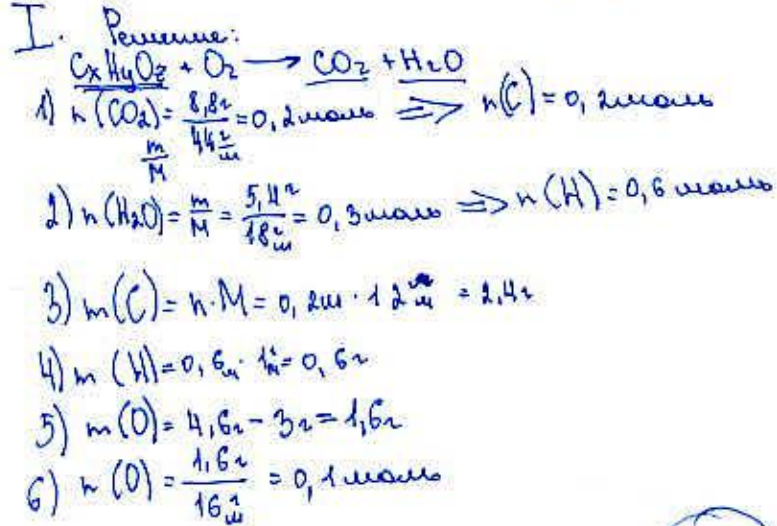 I. Решение:
CxHyOz + O₂ → CO₂ + H₂O
1) n(CO₂) = 8,8г / 44 г/м = 0,2 моль ⇒ n(C) = 0,2 моль
m/M
2) n(H₂O) = m/M = 5,4г / 18 г/м = 0,3 моль ⇒ n(H) = 0,6 моль
3) m(C) = n·M = 0,2м · 12 г/м = 2,4г
4) m(H) = 0,6м · 1 г/м = 0,6г
5) m(O) = 4,6г − 3г = 1,6г
6) n(O) = 1,6г / 16 г/м = 0,1 моль